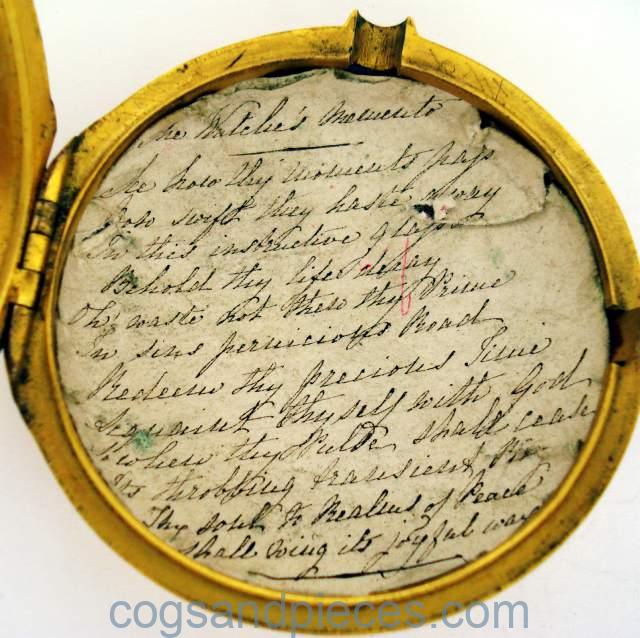 The Watche's Momento
See how thy moments pass
How swift they haste away
In this instructive glass
Behold thy life decay
Oh! waste not then thy Prime
In sins pernicious Road
Redeem thy precious Time
Acquaint thyself with God
So when thy Pulse shall cease
Its throbbing transient
Thy soul to Realms of Peace
Shall wing its joyful way
cogsandpieces.com